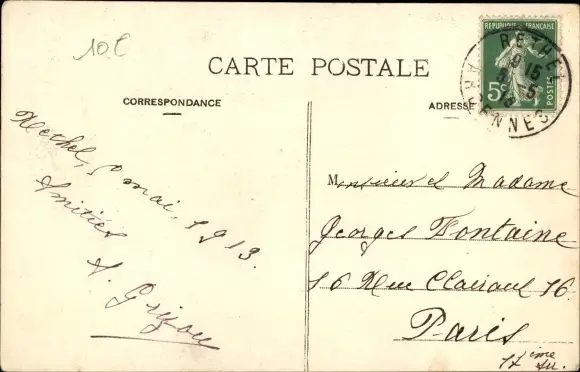 10€
CARTE POSTALE
CORRESPONDANCE
ADRESSE
REPUBLIQUE FRANÇAISE
5c
POSTES
RETHEL
ARDENNES
Rethel, mai, 1913.
Amitiés
Monsieur et Madame
Georges Fontaine
16 Rue Clairaut 16
Paris
17ème